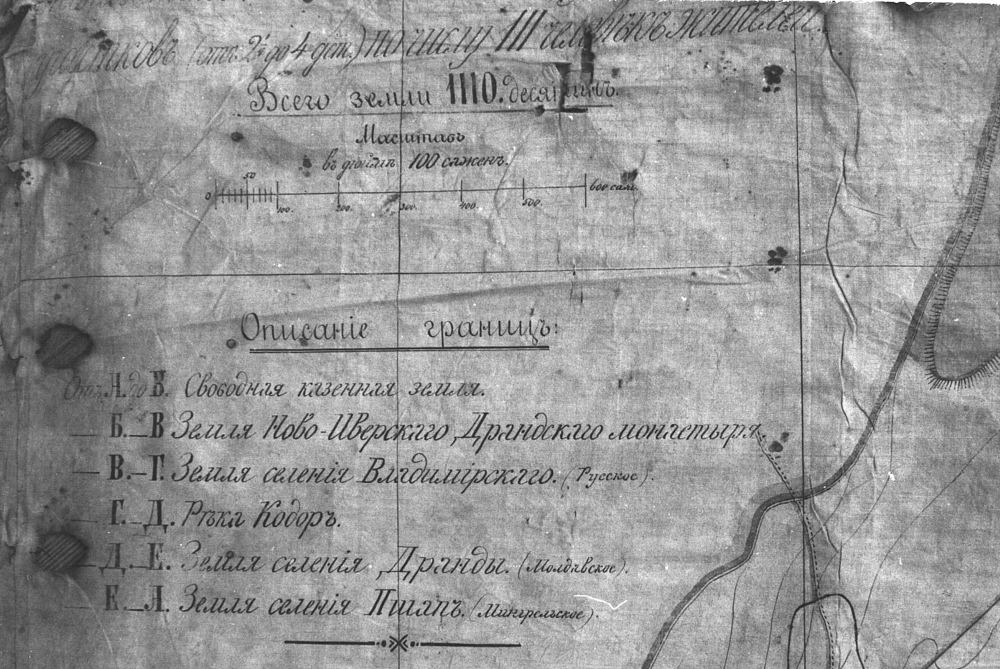 участковъ (отъ 2½ до 4 дес.) по числу III семействъ жителей.
Всего земли 1110. десятинъ.
Масштабъ
въ дюймѣ 100 сажен.
0 50 100. 200. 300. 400. 500. 600 саж.
Описаніе границъ:
Отъ А. до Б. Свободная казенная земля.
— Б.—В Земля Ново-Иверскаго „Драндскаго монастыря.
— В.—Г. Земля селенія Владимірскаго. (Русское).
— Г.—Д. Рѣка Кодоръ.
— Д.—Е. Земля селенія „Дранды. (Молдавское).
— Е.—А. Земля селенія Пшапъ. (Мингрельское).